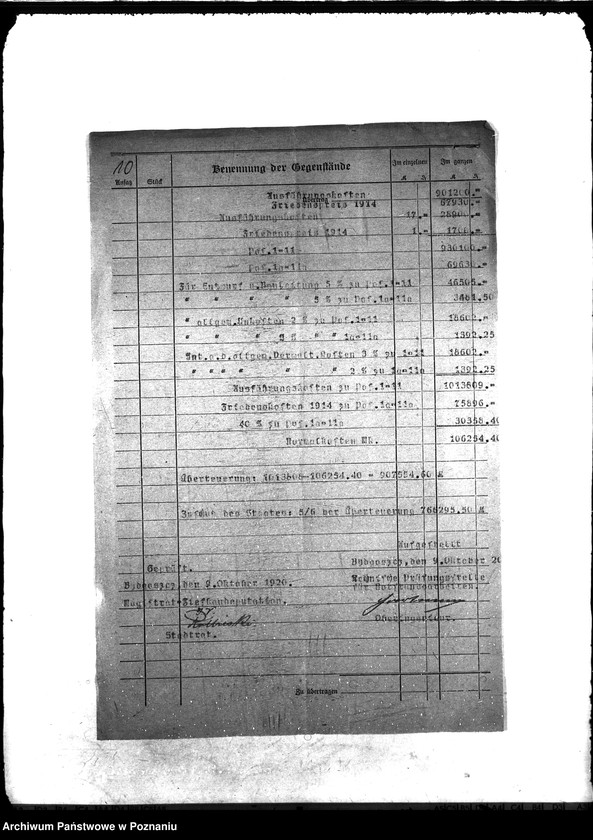 10
Benennung der Gegenstände
Im einzelnen
Im ganzen
Antag Stück
M ₰ M ₰
Ausführungskosten 901200.-
Übertrag
Friedenspreis 1914 67930.-
Ausführungskosten 17.- 28900.-
Friedenspreis 1914 1.- 1700.-
Pos.1-11 930100.-
Pos.1a-11a 69630.-
Für Entwurf u.Bauleitung 5 % zu Pos.1-11 46505.-
" " " " 5 % zu Pos.1a-11a 3481.50
" allgem.Unkosten 2 % zu Pos.1-11 18602.-
" " " 2 % " " 1a-11a 1392.25
Ant.a.d.allgem.Verwalt.Kosten 2 % zu 1-11 18602.-
" " " " " " 2 % zu 1a-11a 1392.25
Ausführungskosten zu Pos.1-11 1013809.-
Friedenskosten 1914 zu Pos.1a-11a 75896.-
40 % zu Pos.1a-11a 30358.40
Normalkosten Mk. 106254.40
Überteuerung: 1013809-106254.40 = 907554.60 M
Zuschuß des Staates: 5/6 der Überteuerung 756295.50 M
Aufgestellt
Geprüft. Bydgoszcz, den 9.Oktober 20
Bydgoszcz, den 9.Oktober 1920. Technische Prüfungsstelle
für Notstandsarbeiten.
Magistrat-Tiefbaudeputation.
Stadtrat. Oberingenieur.
Zu übertragen
Archiwum Państwowe w Poznaniu